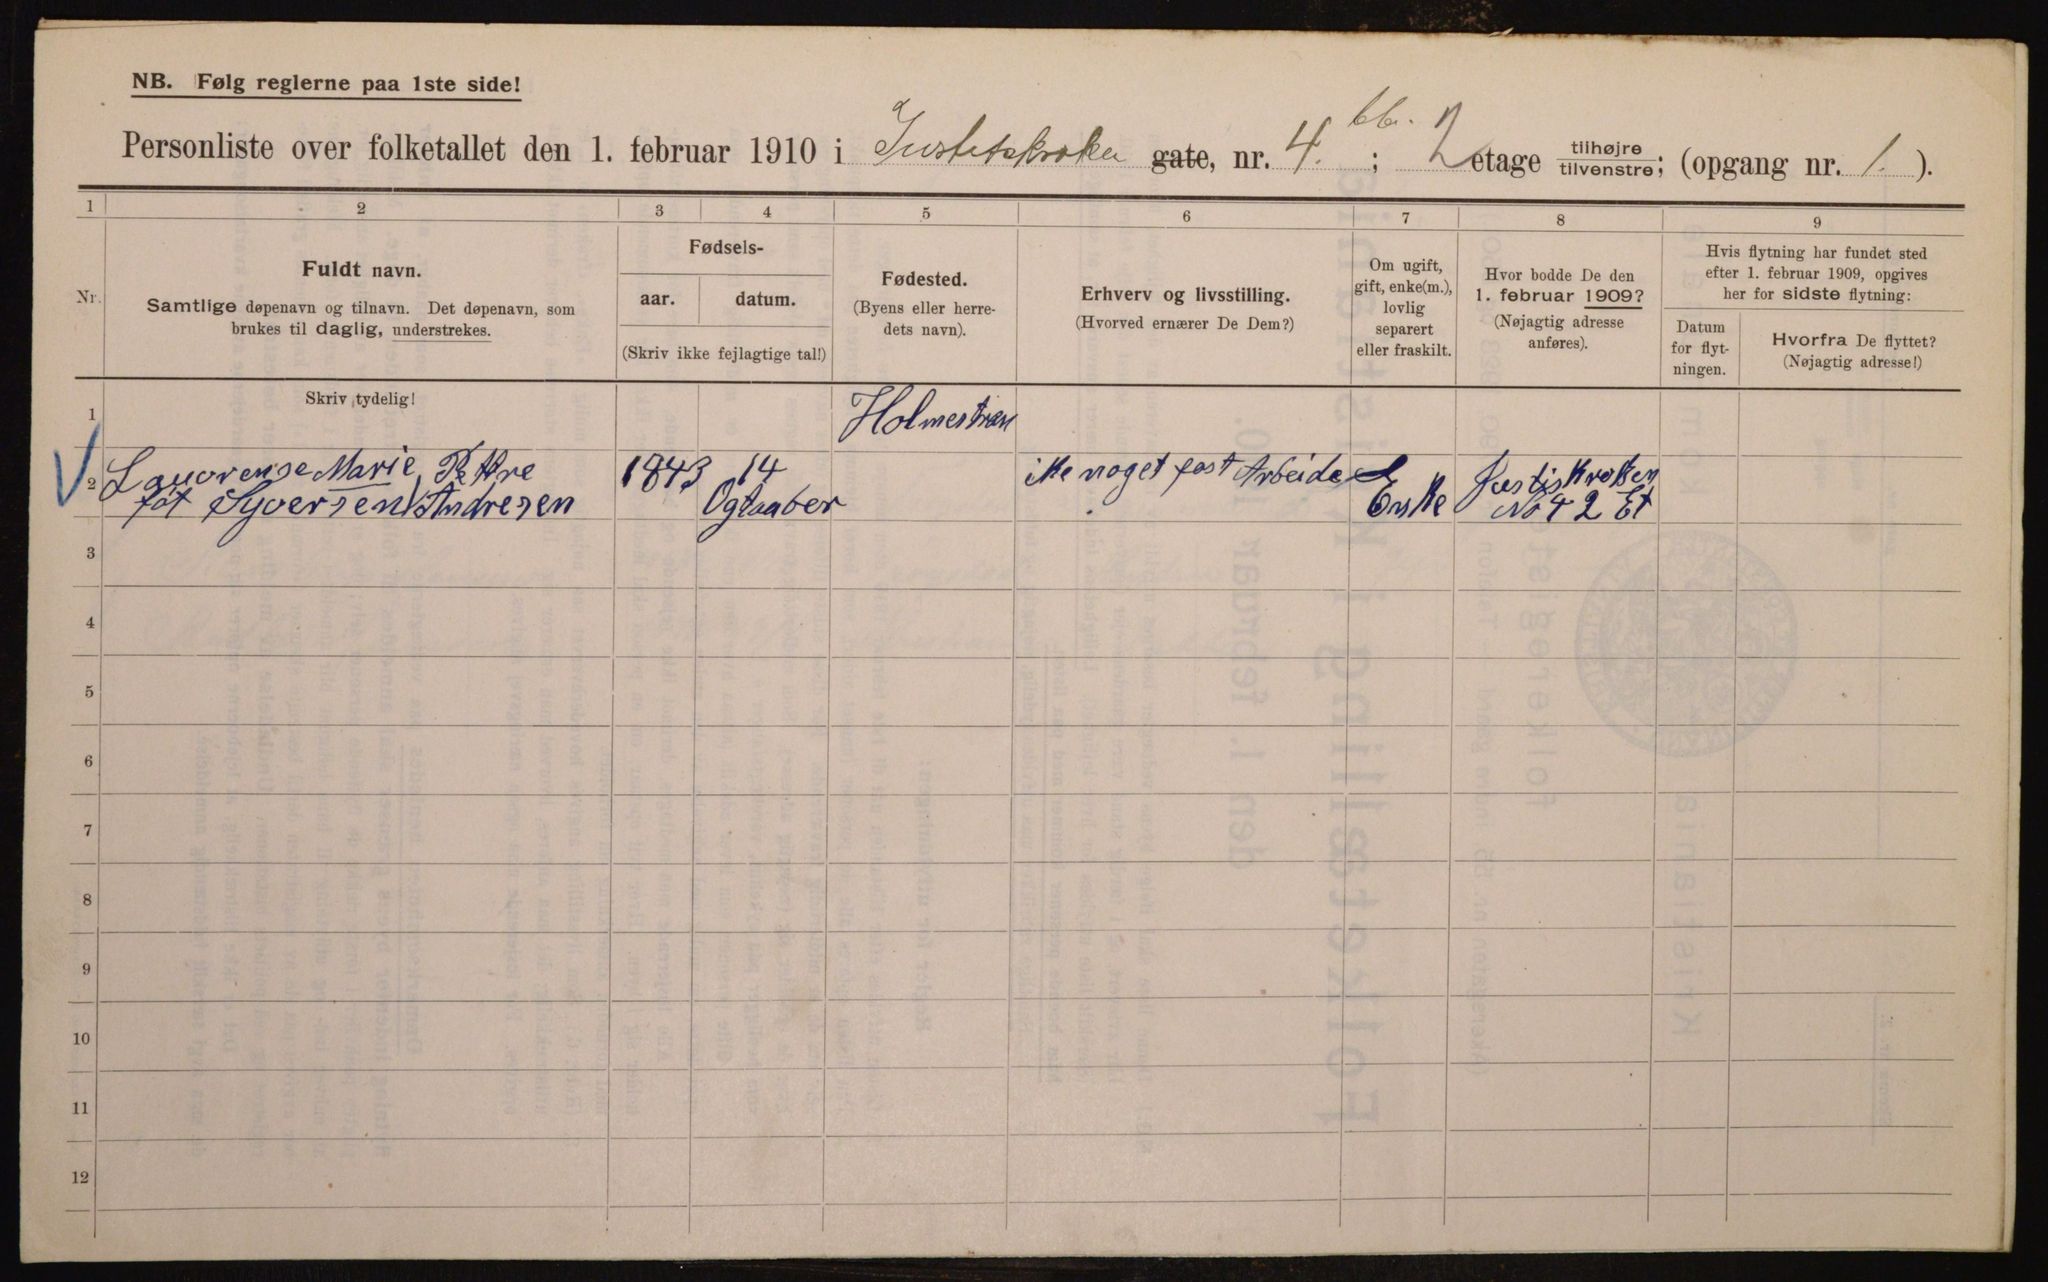 NB. Følg reglerne paa 1ste side!
Personliste over folketallet den 1. februar 1910 i Justitskroken gate, nr. 4. bb. ; 2 etage tilhøjre tilvenstre; (opgang nr. 1. ).
1 2 3 4 5 6 7 8 9
Nr.
Fuldt navn.
Samtlige døpenavn og tilnavn. Det døpenavn, som
brukes til daglig, understrekes.
Fødsels-
aar. datum.
(Skriv ikke fejlagtige tal!)
Fødested.
(Byens eller herre-
dets navn).
Erhverv og livsstilling.
(Hvorved ernærer De Dem?)
Om ugift,
gift, enke(m.),
lovlig
separert
eller fraskilt.
Hvor bodde De den
1. februar 1909?
(Nøjagtig adresse
anføres).
Hvis flytning har fundet sted
efter 1. februar 1909, opgives
her for sidste flytning:
Datum
for flyt-
ningen.
Hvorfra De flyttet?
(Nøjagtig adresse!)
Skriv tydelig!
1 Holmestran
2 Lauvrense Marie Pettre 1843 14 ike noget fast Arbeide Justiskroken
føt Syversen Andresen Ogtaaber Enke No 4 2 Et
3
4
5
6
7
8
9
10
11
12